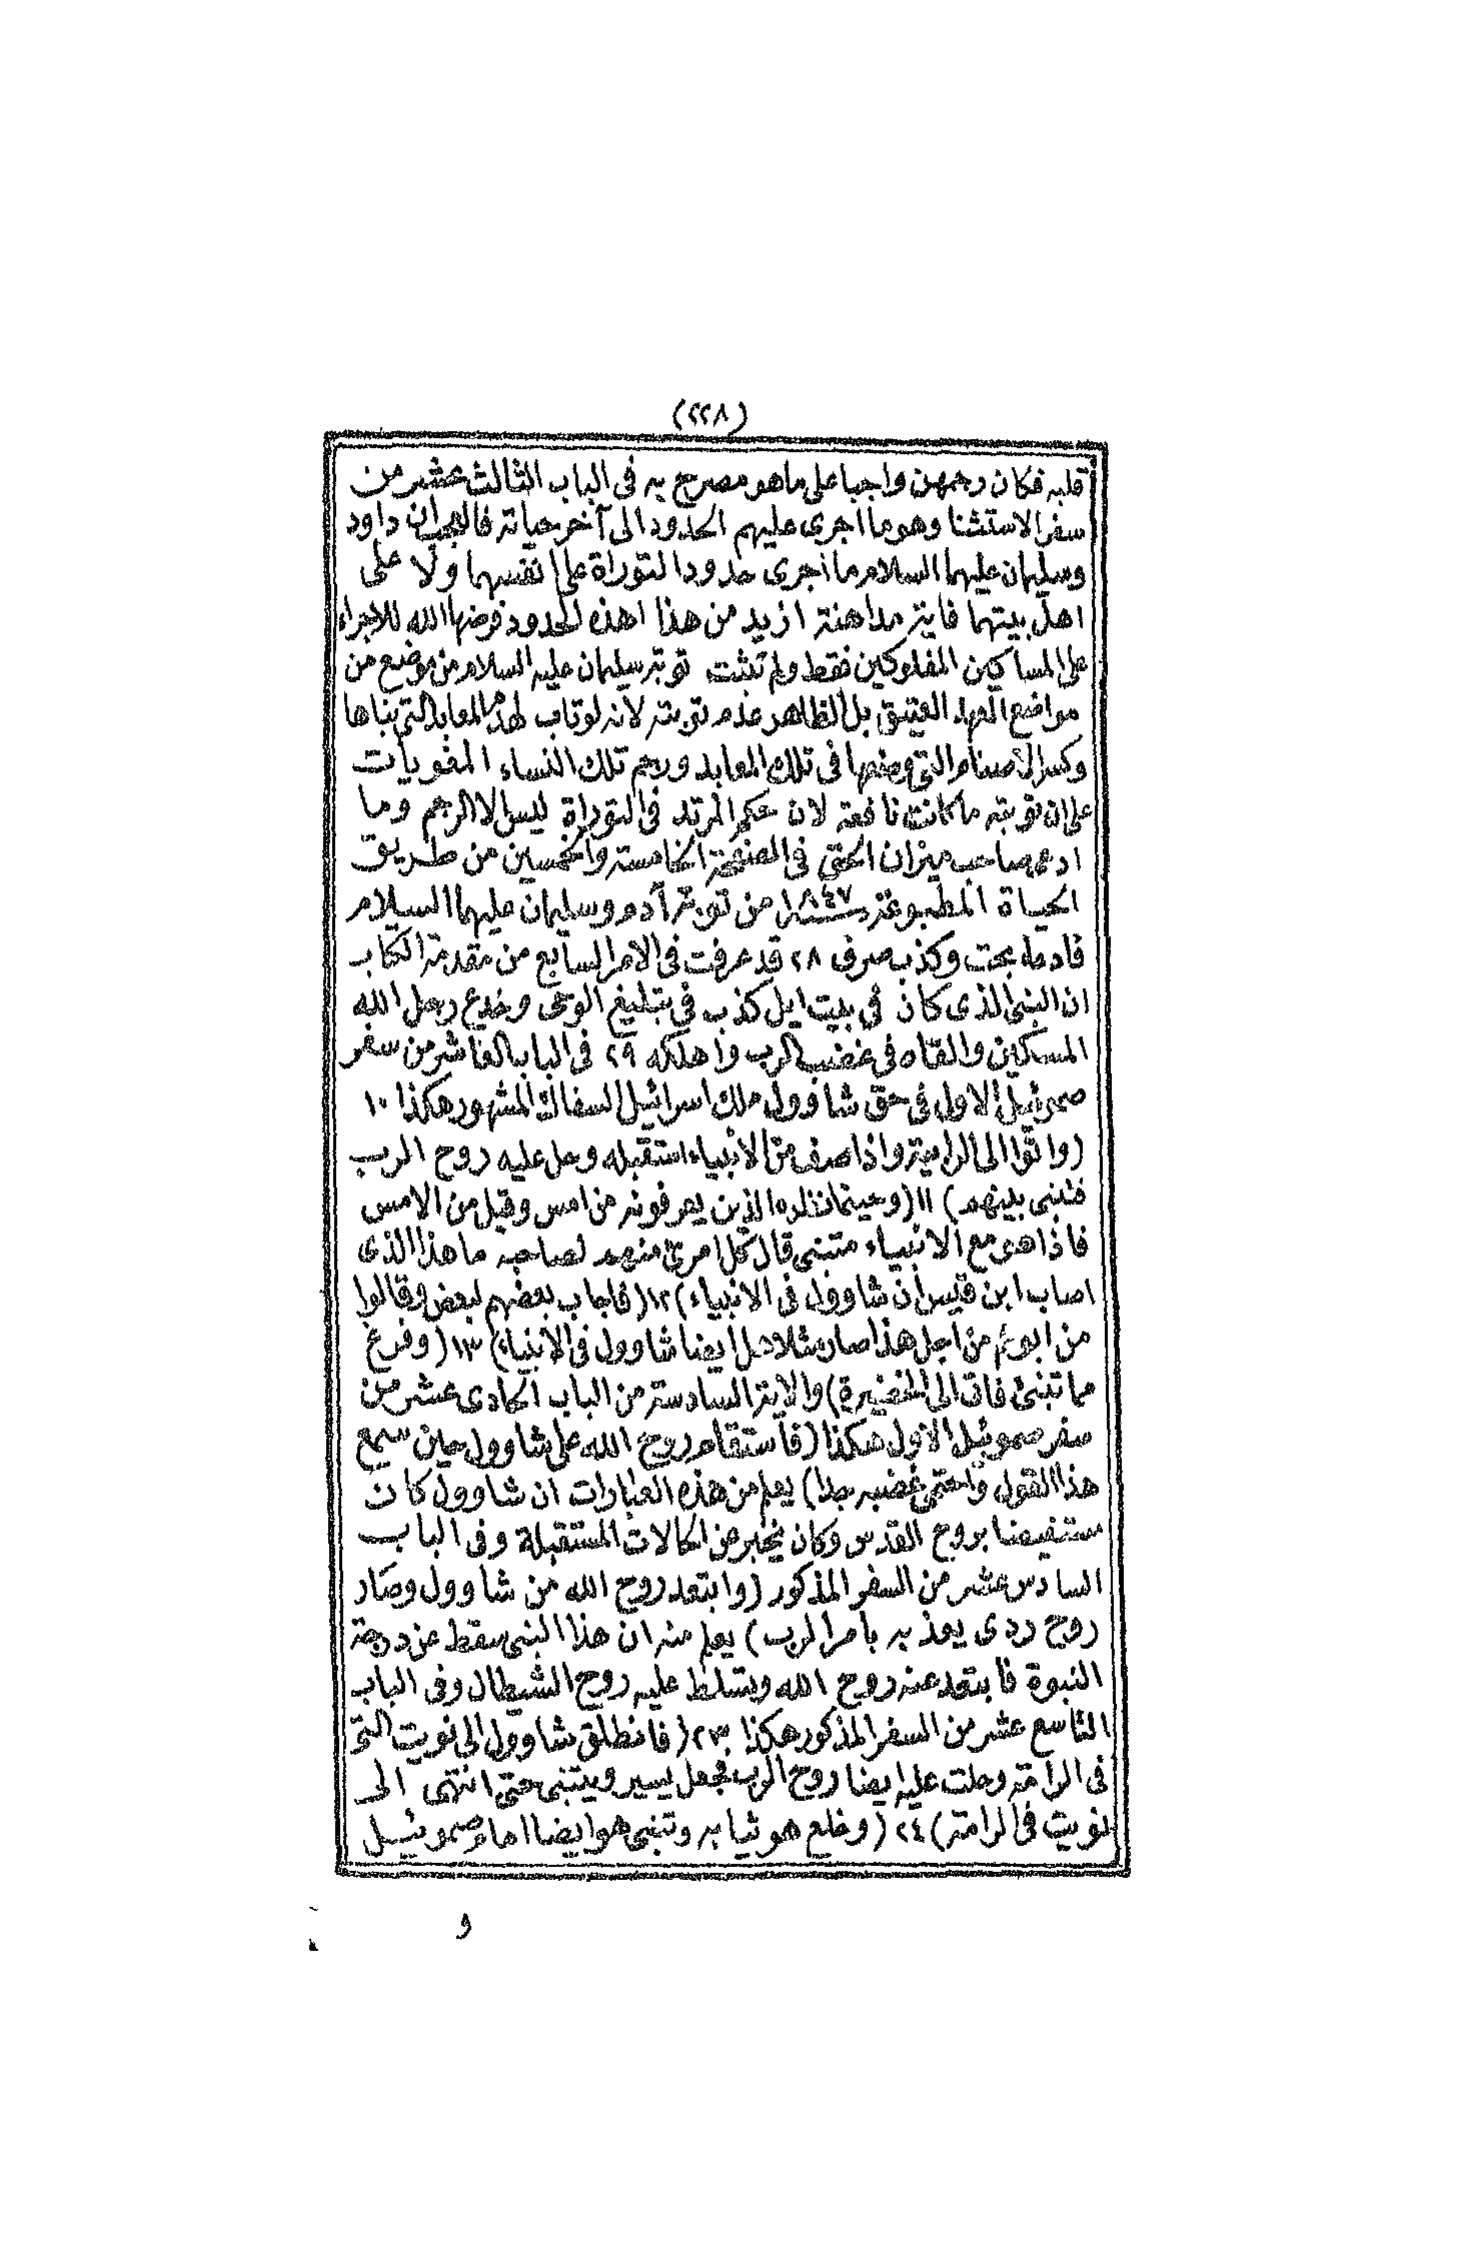 (٢٢٨)
قلبه فكان رجمهن واجبا على ما هو مصرح به فى الباب الثالث عشر من
سفر الاستثنا وهو ما اجرى عليهم الحدود الى آخر حياته فالعجب ان داود
وسليمان عليهما السلام ما اجرى حدود التوراة على انفسهما ولا على
اهل بيتهما فاية مداهنة ازيد من هذا اهذه الحدود فرضها الله للاجراء
على المساكين المفلوكين فقط ولم تثبت توبة سليمان عليه السلام من موضع من
مواضع العهد العتيق بل الظاهر عدم توبته لانه لو تاب لهدم المعابد التى بناها
وكسر الاصنام التى وضعها فى تلك المعابد ورجم تلك النساء المغويات
على ان توبته ما كانت نافعة لان حكم المرتد فى التوراة ليس الا الرجم وما
ادعى صاحب ميزان الحق فى الصفحة الخامسة والخمسين من طريق
الحياة المطبوعة سنة ١٨٤٧ من توبة آدم وسليمان عليهما السلام
فادعاء بحت وكذب صرف ٢٨ قد عرفت فى الامر السابع من مقدمة الكتاب
ان النبى الذى كان فى بيت ايل كذب فى تبليغ الوحى وخدع رجل الله
المسكين والقاه فى غضب الرب واهلكه ٢٩ فى الباب العاشر من سفر
صموئيل الاول فى حق شاوول ملك اسرائيل السفاك المشهور هكذا ١٠
(واتوا الى الرامية واذا صف من الانبياء استقبله وحل عليه روح الرب
فتنبى بينهم) ١١ (وحينما نظره الذين يعرفونه من امس وقبل من الامس
فاذا هو مع الانبياء متنبى قال كل امرئ منهم لصاحبه ما هذا الذى
اصاب ابن قيس ان شاوول فى الانبياء) ١٢ (فاجاب بعضهم لبعض وقالوا
من ابوهم من اجل هذا صار مثلا هل ايضا شاوول فى الانبياء) ١٣ (وفرغ
مما تنبئ فاتى الى الخضيرة) والاية السادسة من الباب الحادى عشر من
سفر صموئيل الاول هكذا (فاستقام روح الله على شاوول حين سمع
هذا القول واحتمى غضبه جدا) يعلم من هذه العبارات ان شاوول كان
مستفيضا بروح القدس وكان يخبر عن الحالات المستقبلة وفى الباب
السادس عشر من السفر المذكور (وابتعد روح الله من شاوول وصار
روح ردى يعذبه بامر الرب) يعلم منه ان هذا النبى سقط عن درجة
النبوة فابتعد عنه روح الله وتسلط عليه روح الشيطان وفى الباب
التاسع عشر من السفر المذكور هكذا ٢٣ (فانطلق شاوول الى نويت التى
فى الرامة وحلت عليه ايضا روح الرب فجعل يسير ويتنبى حتى انتهى الى
نويت فى الرامة) ٢٤ (وخلع هو ثيابه وتنبى هو ايضا امام صموئيل
و